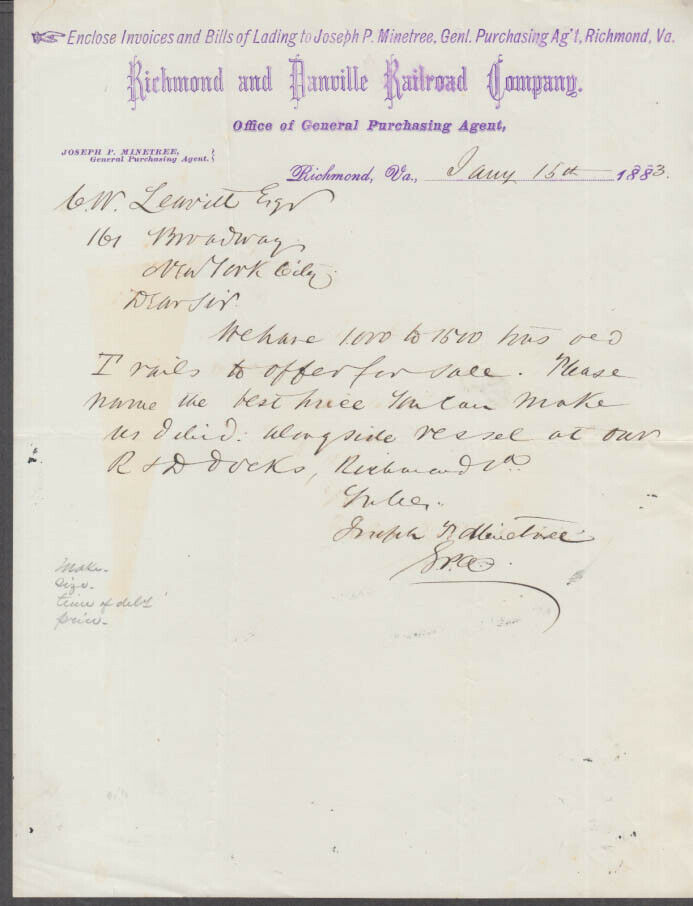 Enclose Invoices and Bills of Lading to Joseph P. Minetree, Genl. Purchasing Ag't, Richmond, Va.
Richmond and Danville Railroad Company.
Office of General Purchasing Agent,
JOSEPH P. MINETREE,
General Purchasing Agent.
Richmond, Va., Jany 15th 1883.
C. W. Leavitt Esqr
161 Broadway
New York City.
Dear Sir.
We have 1000 to 1500 tons old
T rails to offer for sale. Please
name the best price you can make
us delivd. alongside vessel at our
R & D Docks, Richmond Va
Joseph P Minetree
G.P.A.
make.
size.
time of
price.